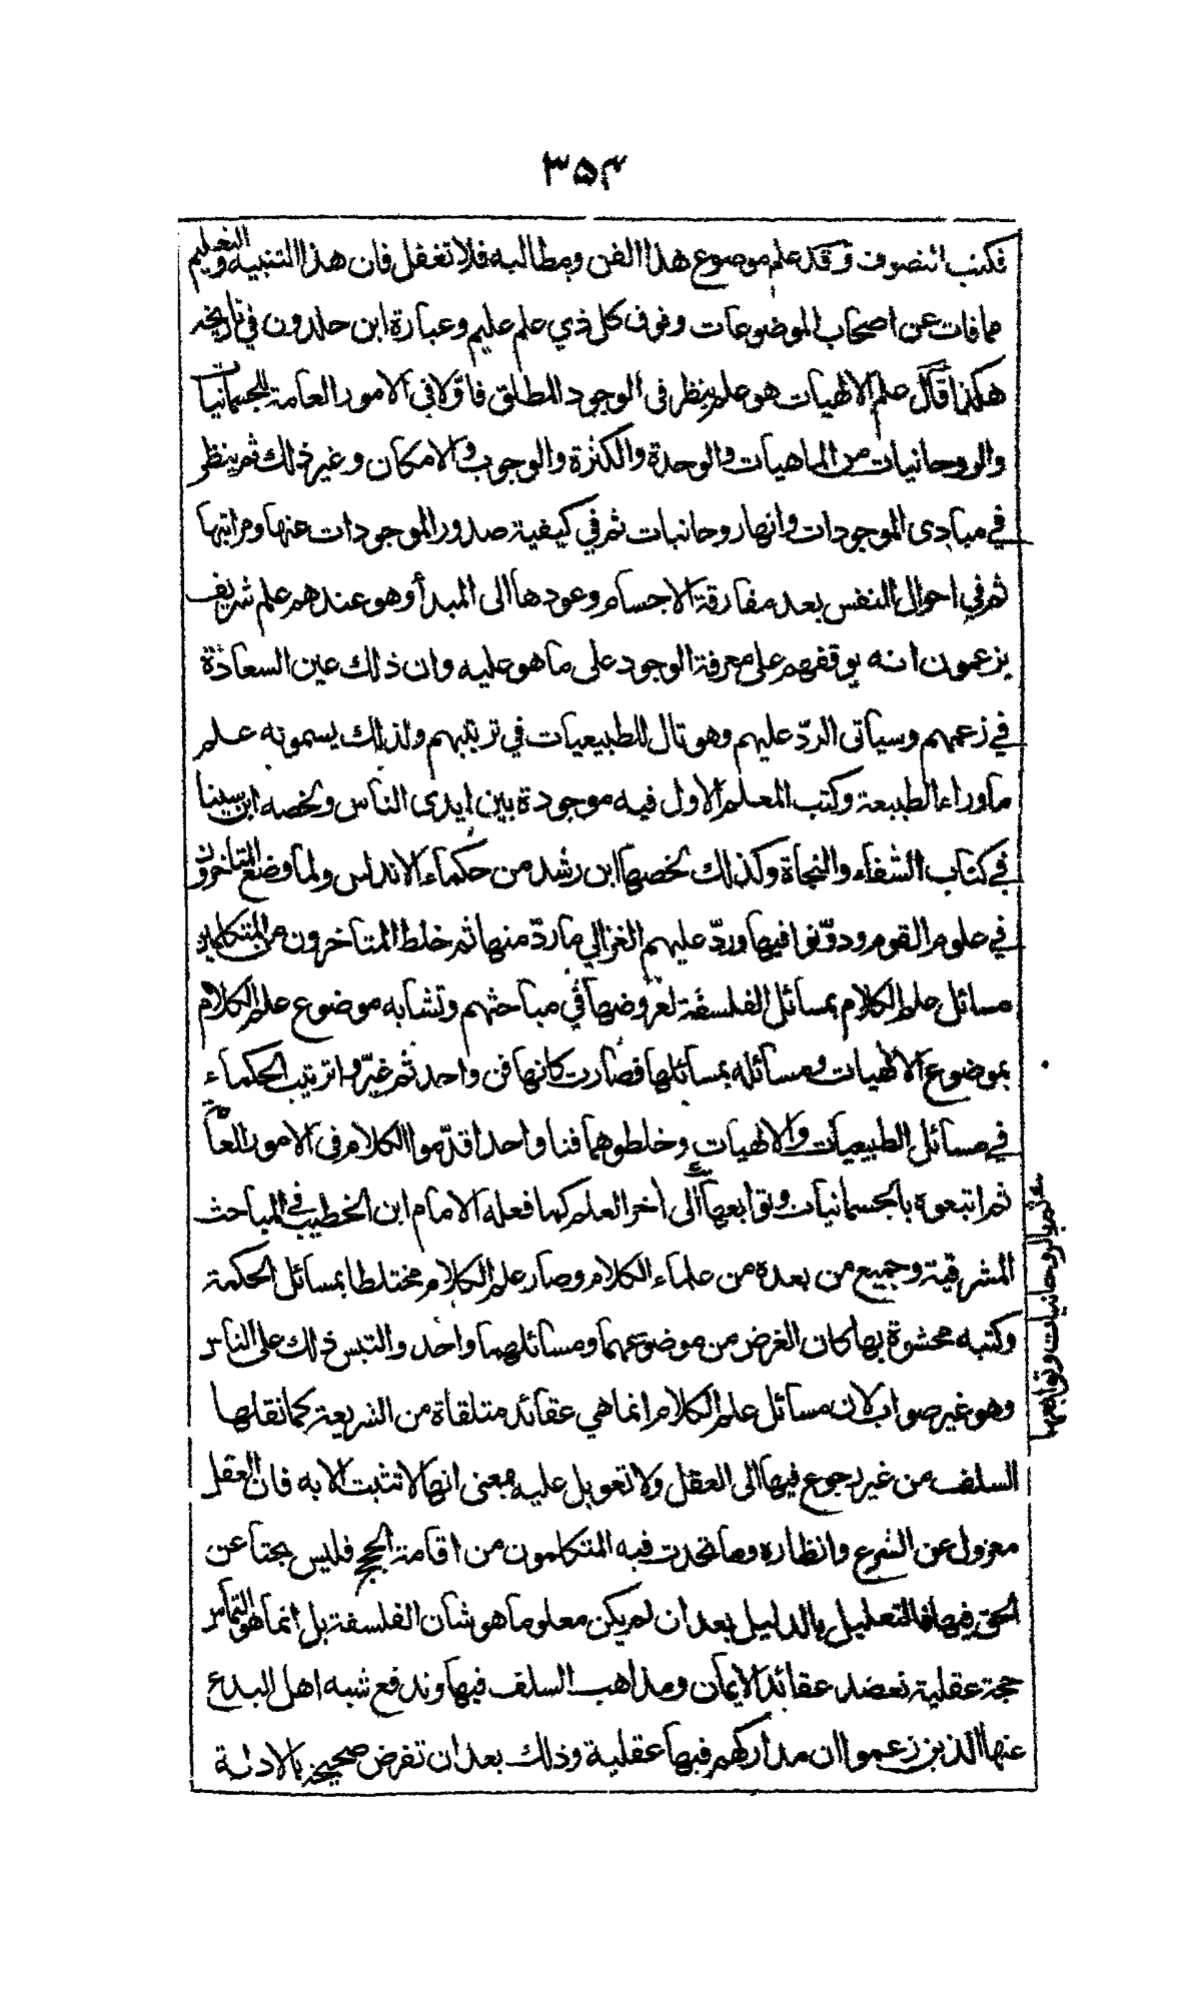 ۳۵۴
فكتب التصوف وقد علم موضوع هذا الفن ومطالبه فلا تغفل فان هذا التنبيه والتعليم
مما فات عن اصحاب الموضوعات وفوق كل ذي علم عليم وعبارة ابن خلدون في تاريخه
هكذا قال علم الالهيات هو علم ينظر في الوجود المطلق فاولا في الامور العامة للجسمانيات
والروحانيات من الماهيات والوحدة والكثرة والوجوب والامكان وغير ذلك ثم ينظر
في مبادى الموجودات وانها روحانيات ثم في كيفية صدور الموجودات عنها ومراتبها
ثم في احوال النفس بعد مفارقة الاجسام وعودها الى المبدأ وهو عندهم علم شريف
يزعمون انه يوقفهم على معرفة الوجود على ما هو عليه وان ذلك عين السعادة
في زعمهم وسيأتى الردّ عليهم وهو تال للطبيعيات في ترتيبهم ولذلك يسمونه علم
ما وراء الطبيعة وكتب المعلم الاول فيه موجودة بين ايدى الناس ولخصه ابن سينا
في كتاب الشفاء والنجاة وكذلك لخصها ابن رشد من حكماء الاندلس ولما وضع المتاخرون
في علوم القوم ودوّنوا فيها وردّ عليهم الغزالي ما ردّ منها ثم خلط المتاخرون من المتكلمين
مسائل علم الكلام بمسائل الفلسفة لعروضها في مباحثهم وتشابه موضوع علم الكلام
بموضوع الالهيات ومسائله بمسائلها فصارت كانها فن واحد ثم غيّروا ترتيب الحكماء
في مسائل الطبيعيات والالهيات وخلطوهما فنا واحدا قدّموا الكلام في الامور العامة
ثم اتبعوه بالجسمانيات وتوابعها الى اخر العلم كما فعله الامام ابن الخطيب في المباحث
ثم بالروحانيات وتوابعها
المشرقية وجميع من بعده من علماء الكلام وصار علم الكلام مختلطا بمسائل الحكمة
وكتبه محشوة بها كان الغرض من موضوعهما ومسائلهما واحد والتبس ذلك على الناس
وهو غير صواب لان مسائل علم الكلام انما هي عقائد متلقاة من الشريعة كما نقلها
السلف من غير رجوع فيها الى العقل ولا تعويل عليه بمعنى انها لا تثبت الا به فان العقل
معزول عن الشرع وانظاره وما تحدث فيه المتكلمون من اقامة الحجج فليس بحثا عن
الحق فيها فالتعليل بالدليل بعد ان لم يكن معلوما هو شان الفلسفة بل انما هو التماس
حجة عقلية تعضد عقائد الايمان ومذاهب السلف فيها وتدفع شبه اهل البدع
عنها الذين زعموا ان مداركهم فيها عقلية وذلك بعد ان تفرض صحيحة بالادلة